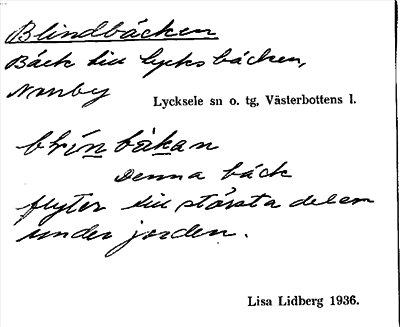 Blindbäcken
Bäck till Lycksbäcken,
Norrby
Lycksele sn o. tg, Västerbottens l.
blínbäkan
Denna bäck
flyter till största delen
under jorden.
Lisa Lidberg 1936.